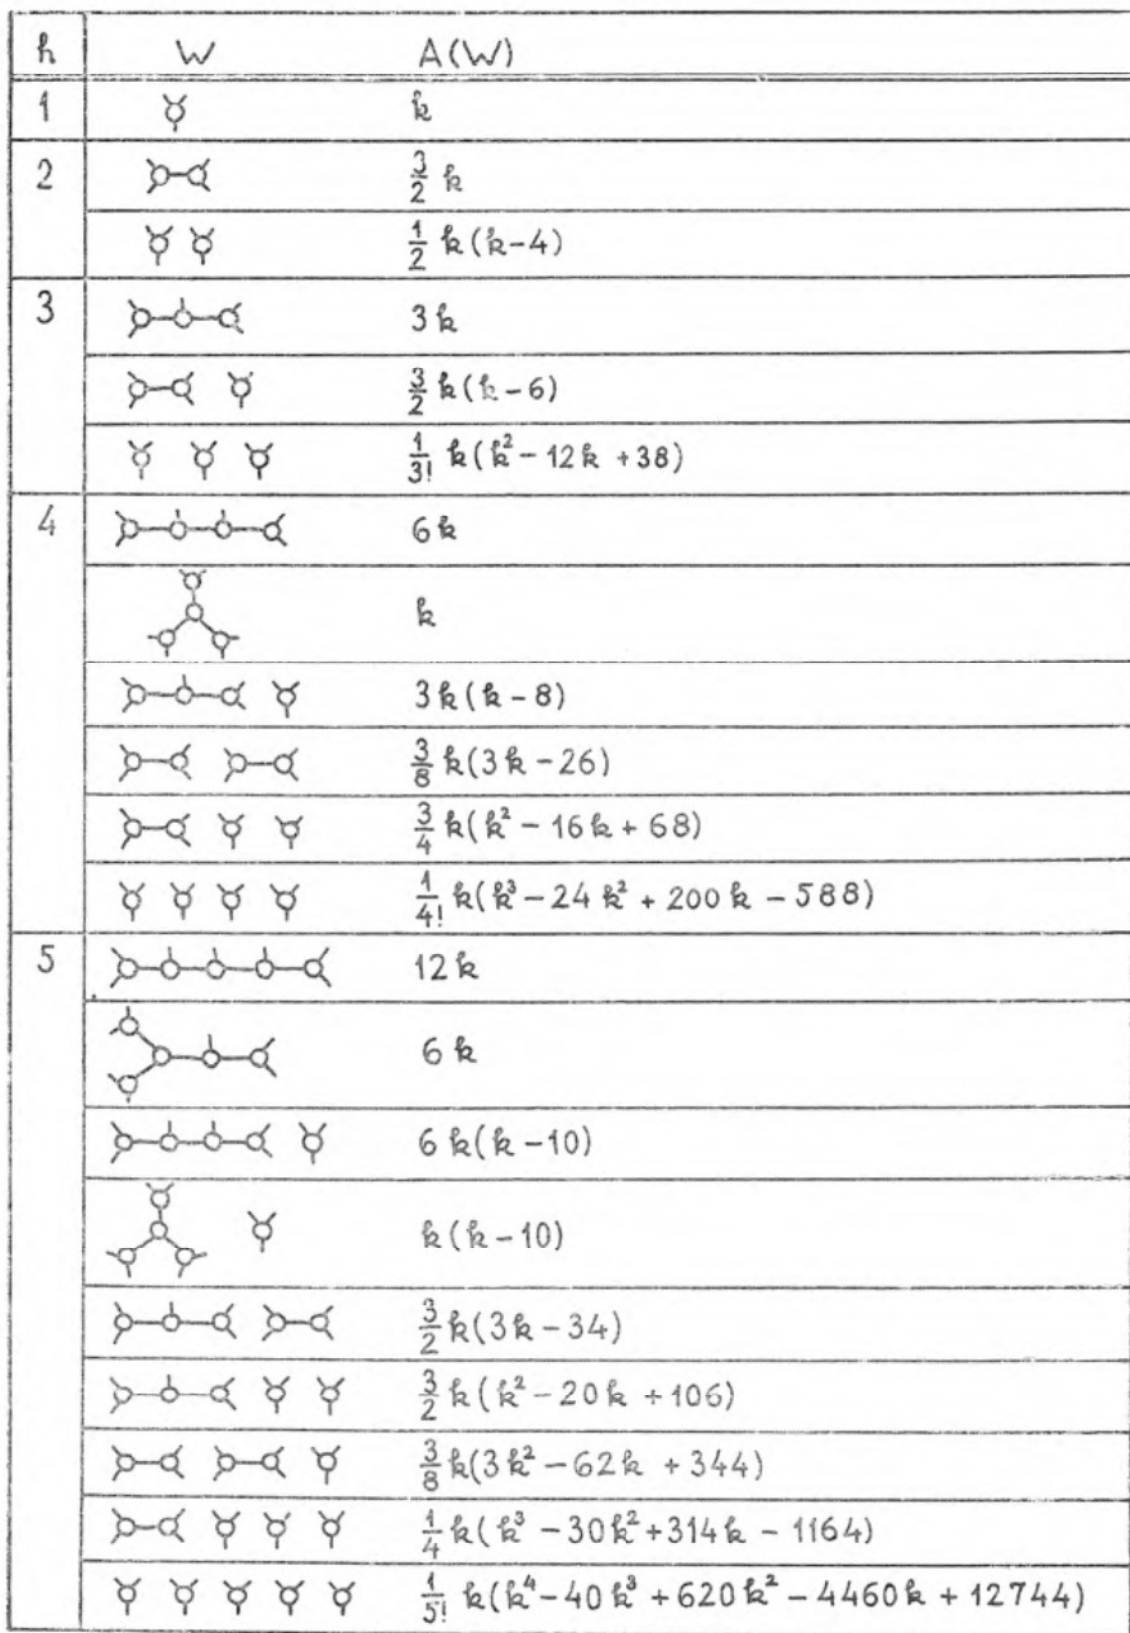 h W A(W)
1 k
2 3/2 k
1/2 k(k-4)
3 3k
3/2 k(k-6)
1/3! k(k²-12k+38)
4 6k
k
3k(k-8)
3/8 k(3k-26)
3/4 k(k²-16k+68)
1/4! k(k³-24k²+200k-588)
5 12k
6k
6k(k-10)
k(k-10)
3/2 k(3k-34)
3/2 k(k²-20k+106)
3/8 k(3k²-62k+344)
1/4 k(k³-30k²+314k-1164)
1/5! k(k⁴-40k³+620k²-4460k+12744)